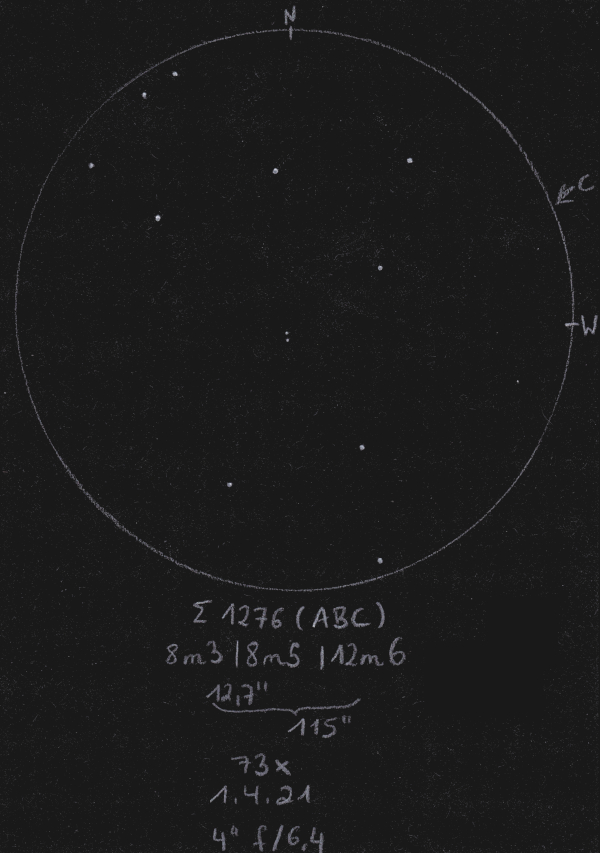 N
C
W
Σ 1276 (ABC)
8m3 | 8m5 | 12m6
12,7"
115"
73x
1.4.21
4" f/6,4